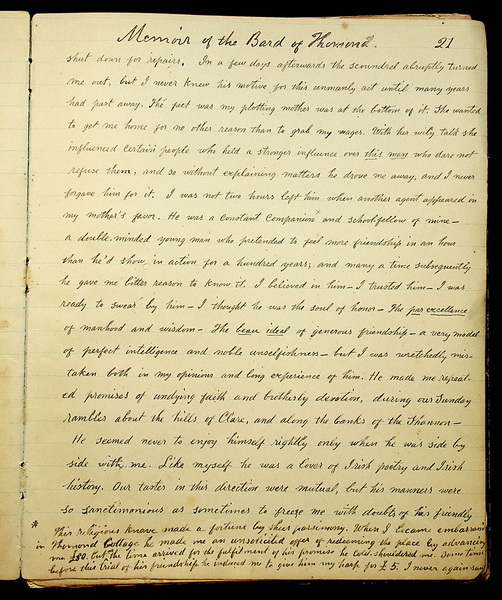 Memoir of the Bard of Thomond. 21
shut down for repairs. In a few days afterwards the scoundrel abruptly turned
me out, but I never knew his motive for this unmanly act until many years
had past away. The fact was my plotting mother was at the bottom of it. She wanted
to get me home for no other reason than to grab my wages. With her wily talk she
influenced certain people who held a stronger influence over this man who dare not
refuse them, and so without explaining matters he drove me away, and I never
forgave him for it. I was not two hours left him when another agent appeared in
my mother's favor. He was a constant companion* and schoolfellow of mine—
a double-minded young man who pretended to feel more friendship in an hour
than he'd show in action for a hundred years; and many a time subsequently
he gave me bitter reason to know it. I believed in him— I trusted him— I was
ready to swear by him— I thought he was the soul of honor— The par excellence
of manhood and wisdom— The beau ideal of generous friendship— a very model
of perfect intelligence and noble unselfishness— but I was wretchedly mis-
taken both in my opinions and long experience of him. He made me repeat-
ed promises of undying faith and brotherly devotion, during our Sunday
rambles about the hills of Clare, and along the banks of the Shannon—
He seemed never to enjoy himself rightly only when he was side by
side with me. Like myself he was a lover of Irish poetry and Irish
history. Our tastes in this direction were mutual, but his manners were
so sanctimonious as sometimes to freeze me with doubts of his friendly
* This religious knave made a fortune by sheer parsimony. When I became embarrassed
in Thomond Cottage he made me an unsolicited offer of redeeming the place by advancing
me £80. but the time arrived for the fulfilment of his promise he cold-shouldered me. Some time
before this trial of his friendship he induced me to give him my harp for £5. I never again saw